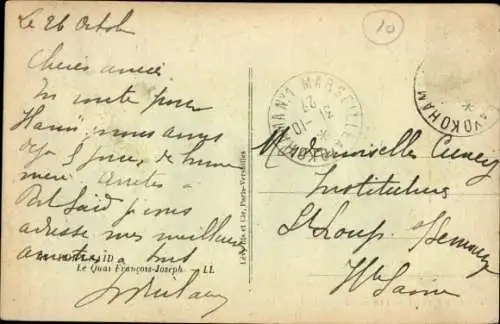 Le 26 Octobre
10
Chères amies
En route pour
Hanoï nous avons
déjà 5 jours de bonne
mer arrêtés à
Port Saïd je vous
adresse mes meilleures
amitiés à tous
Le Quai François-Joseph. LL
Lévy Fils et Cie, Paris-Versailles
MARSEILLE
YOKOHAMA N°1
31 -10
27
YOKOHAM
Mesdemoiselles
Institutrices
St Loup s/ Semouse
Hte Saône